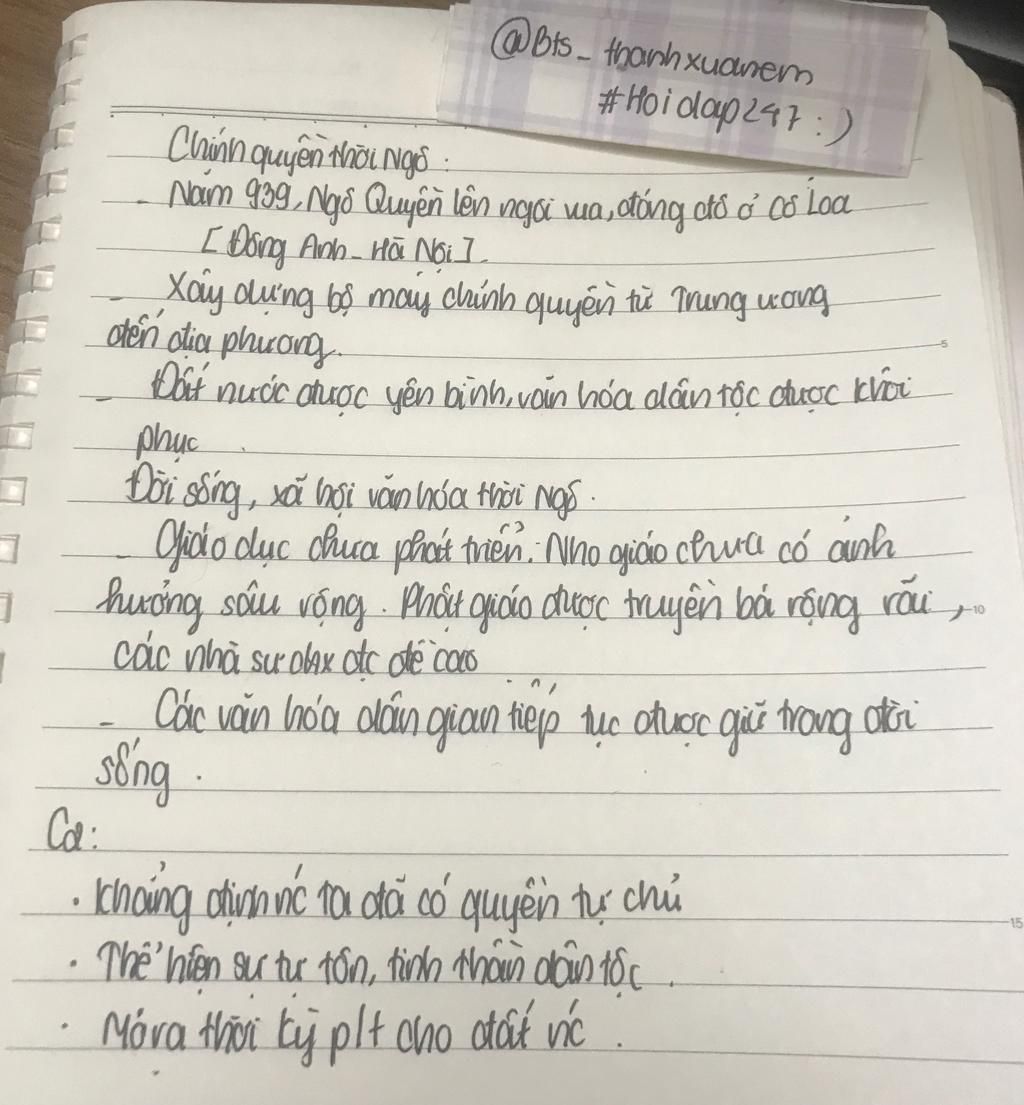 @Bts_thanhxuanem
#Hoidap247 :)
Chính quyền thời Ngô :
- Năm 939, Ngô Quyền lên ngôi vua, đóng đô ở Cổ Loa
[Đông Anh - Hà Nội]
- Xây dựng bộ máy chính quyền từ Trung ương
đến địa phương.
- Đất nước được yên bình, văn hóa dân tộc được khôi
phục .
Đời sống, xã hội văn hóa thời Ngô .
- Giáo dục chưa phát triển. Nho giáo chưa có ảnh
hưởng sâu rộng. Phật giáo được truyền bá rộng rãi,
các nhà sư đc đề cao
- Các văn hóa dân gian tiếp tục được giữ trong đời
sống .
:
. Khẳng định nc ta đã có quyền tự chủ
. Thể hiện sự tự tôn, tinh thần dân tộc .
. Mở ra thời kỳ p/t cho đất nc .
5
10
15